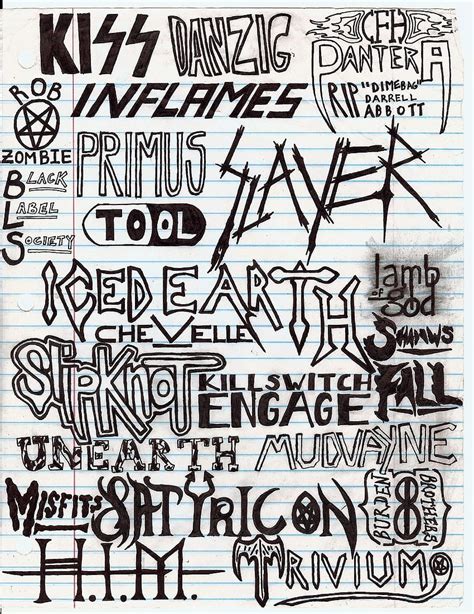 KISS
DANZIG
CFH
PANTERA
RIP "DIMEBAG"
DARRELL
ABBOTT
ROB
ZOMBIE
IN FLAMES
PRIMUS
SLAYER
BLACK
LABEL
SOCIETY
TOOL
ICED EARTH
lamb
of god
CHEVELLE
SHADOWS
FALL
SLIPKNOT
KILLSWITCH
ENGAGE
UNEARTH
MUDVAYNE
MISFITS
SATYRICON
BURDEN
8
BROTHERS
H.I.M.
TRIVIUM